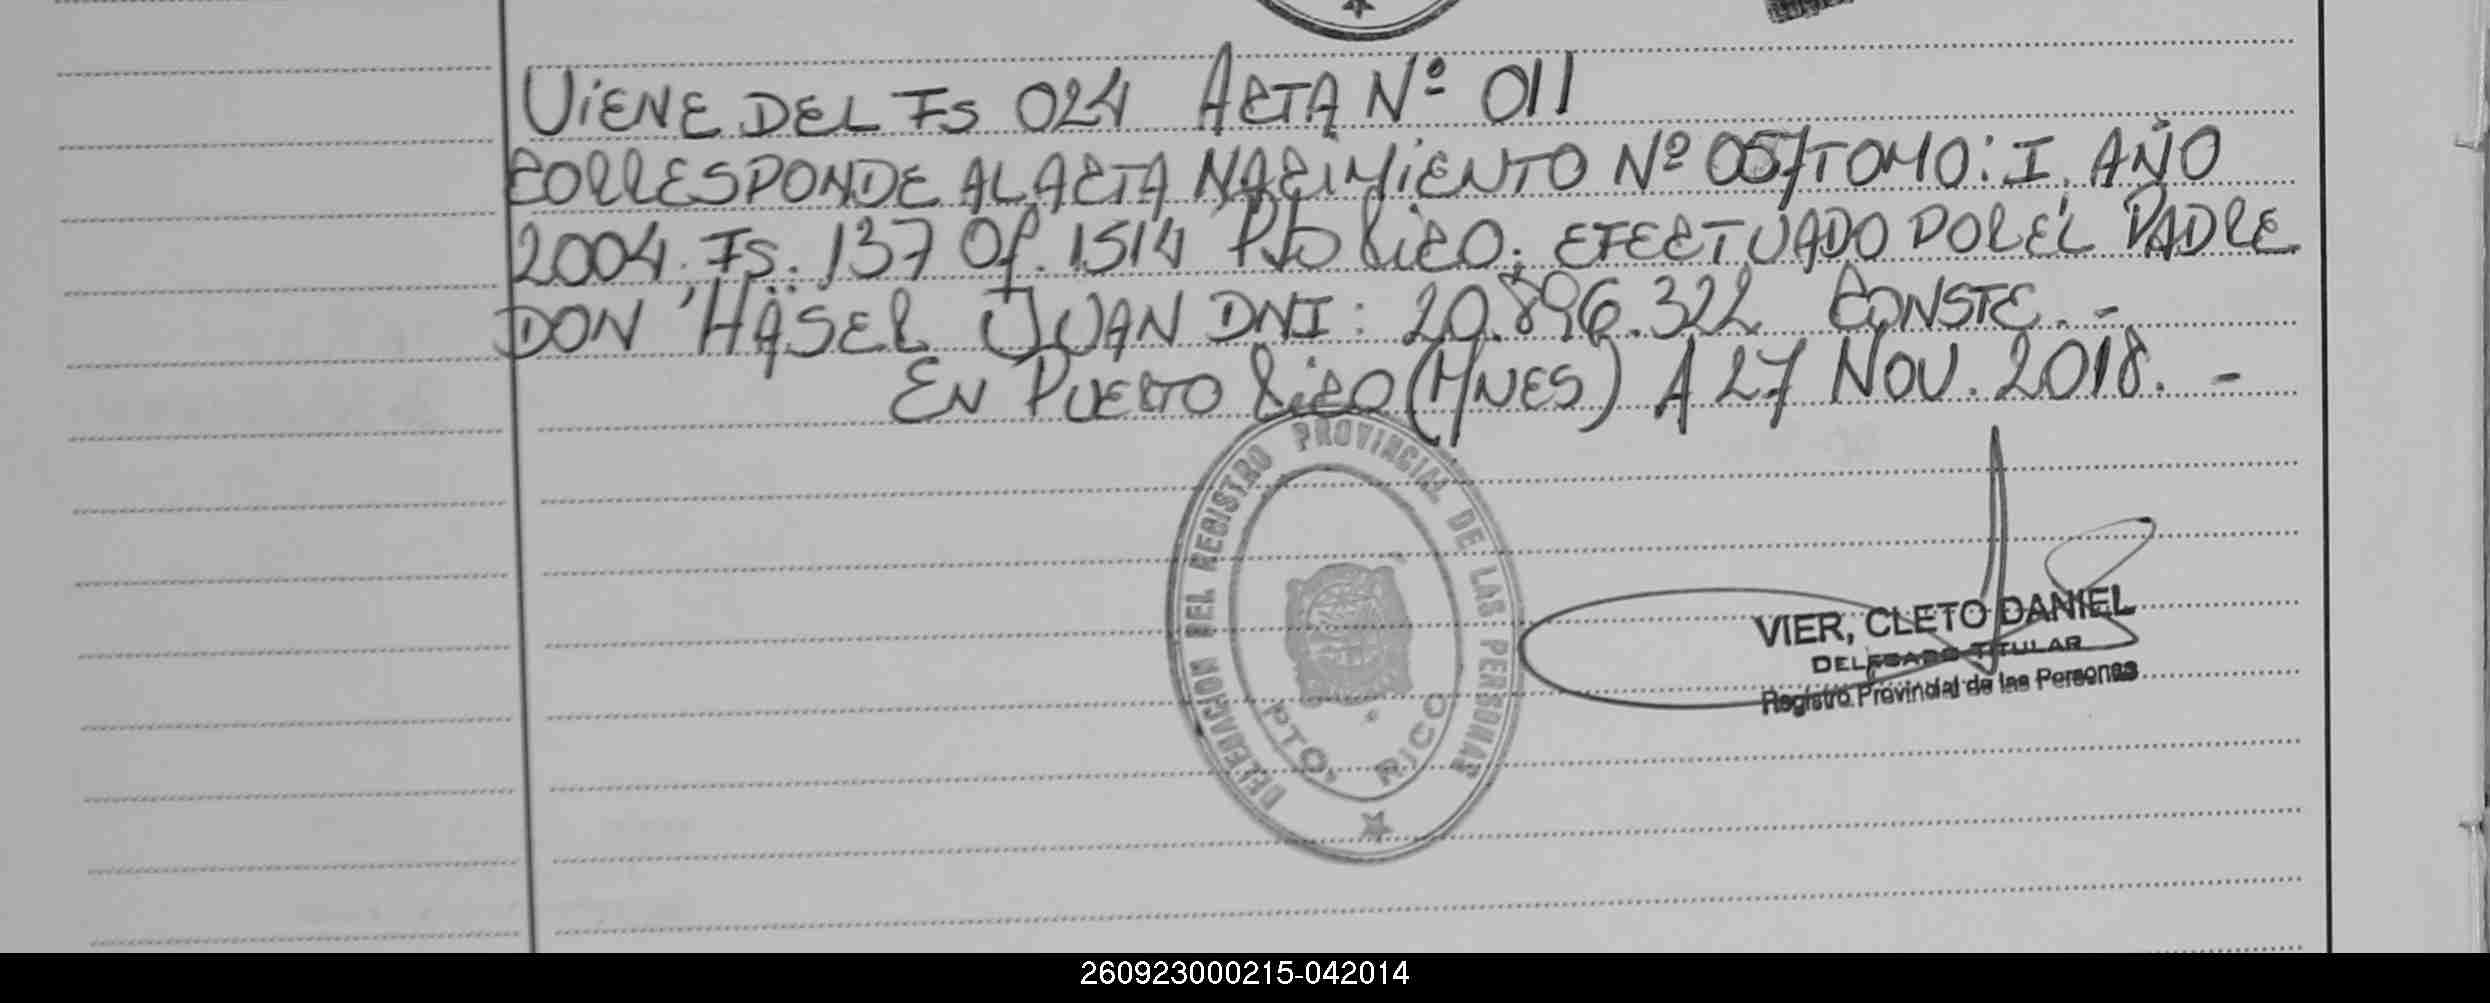 VIENE DEL FS 024 ACTA Nº 011
CORRESPONDE AL ACTA NACIMIENTO Nº 057 TOMO: I. AÑO
2004. FS. 137 Of. 1514 Pto Rico. EFECTUADO POR EL PADRE
DON HÄSER JUAN DNI: 20.896.322 CONSTE. -
EN PUERTO RICO (MNES) A 27 NOV. 2018. -
DELEGACION DEL REGISTRO PROVINCIAL DE LAS PERSONAS
PTO. RICO
VIER, CLETO DANIEL
DELEGADO TITULAR
Registro Provincial de las Personas
260923000215-042014